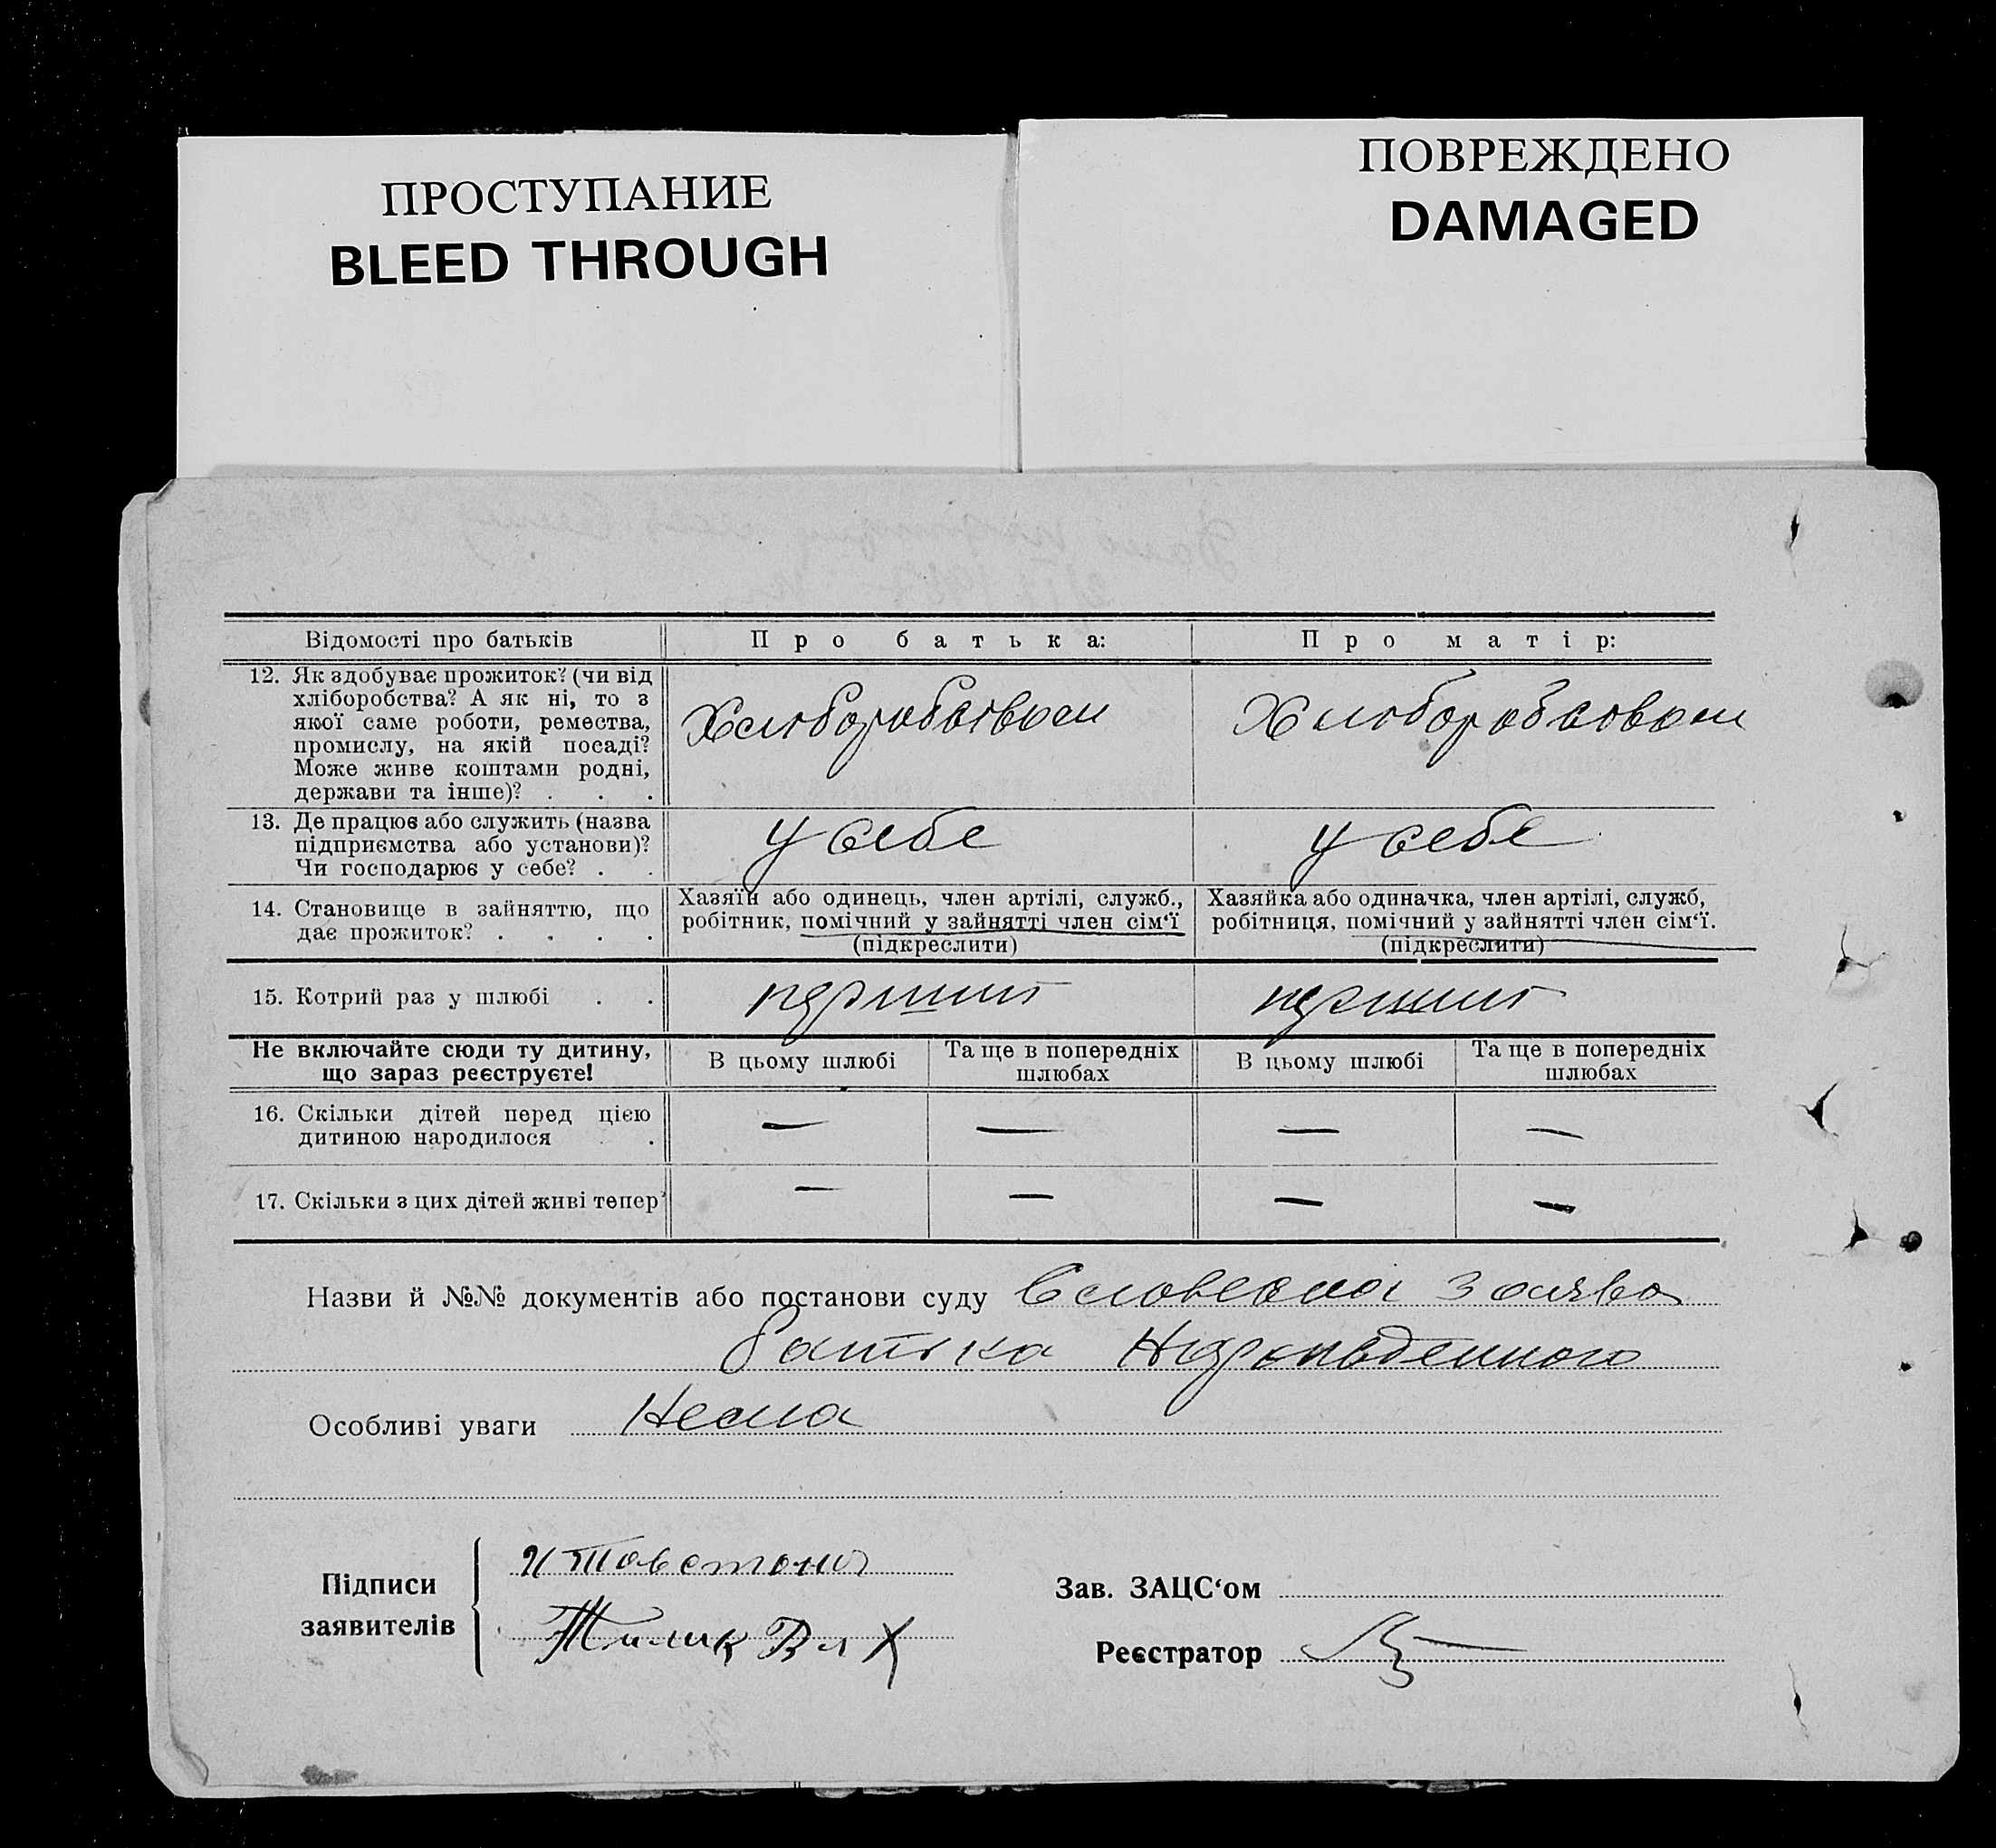 ПРОСТУПАНИЕ
BLEED THROUGH
ПОВРЕЖДЕНО
DAMAGED
Відомості про батьків
Про батька:
Про матір:
12. Як здобуває прожиток? (чи від
хліборобства? А як ні, то з
якої саме роботи, ремества,
промислу, на якій посаді?
Може живе коштами родні,
держави та інше)? . . .
Хліборобством
Хліборобством
13. Де працює або служить (назва
підприємства або установи)?
Чи господарює у себе? . .
У себе
У себе
14. Становище в зайняттю, що
дає прожиток? . . . .
Хазяїн або одинець, член артілі, служб.,
робітник, помічний у зайнятті член сім‘ї
(підкреслити)
Хазяйка або одиначка, член артілі, служб,
робітниця, помічний у зайнятті член сім‘ї.
(підкреслити)
15. Котрий раз у шлюбі . .
перший
перший
Не включайте сюди ту дитину,
що зараз реєструєте!
В цьому шлюбі
Та ще в попередніх
шлюбах
В цьому шлюбі
Та ще в попередніх
шлюбах
16. Скільки дітей перед цією
дитиною народилося .
— — — —
17. Скільки з цих дітей живі тепер
— — — —
Назви й №№ документів або постанови суду Словесна заява
батька
Особливі уваги Нема
Підписи
заявителів
Зав. ЗАЦС‘ом
Реєстратор